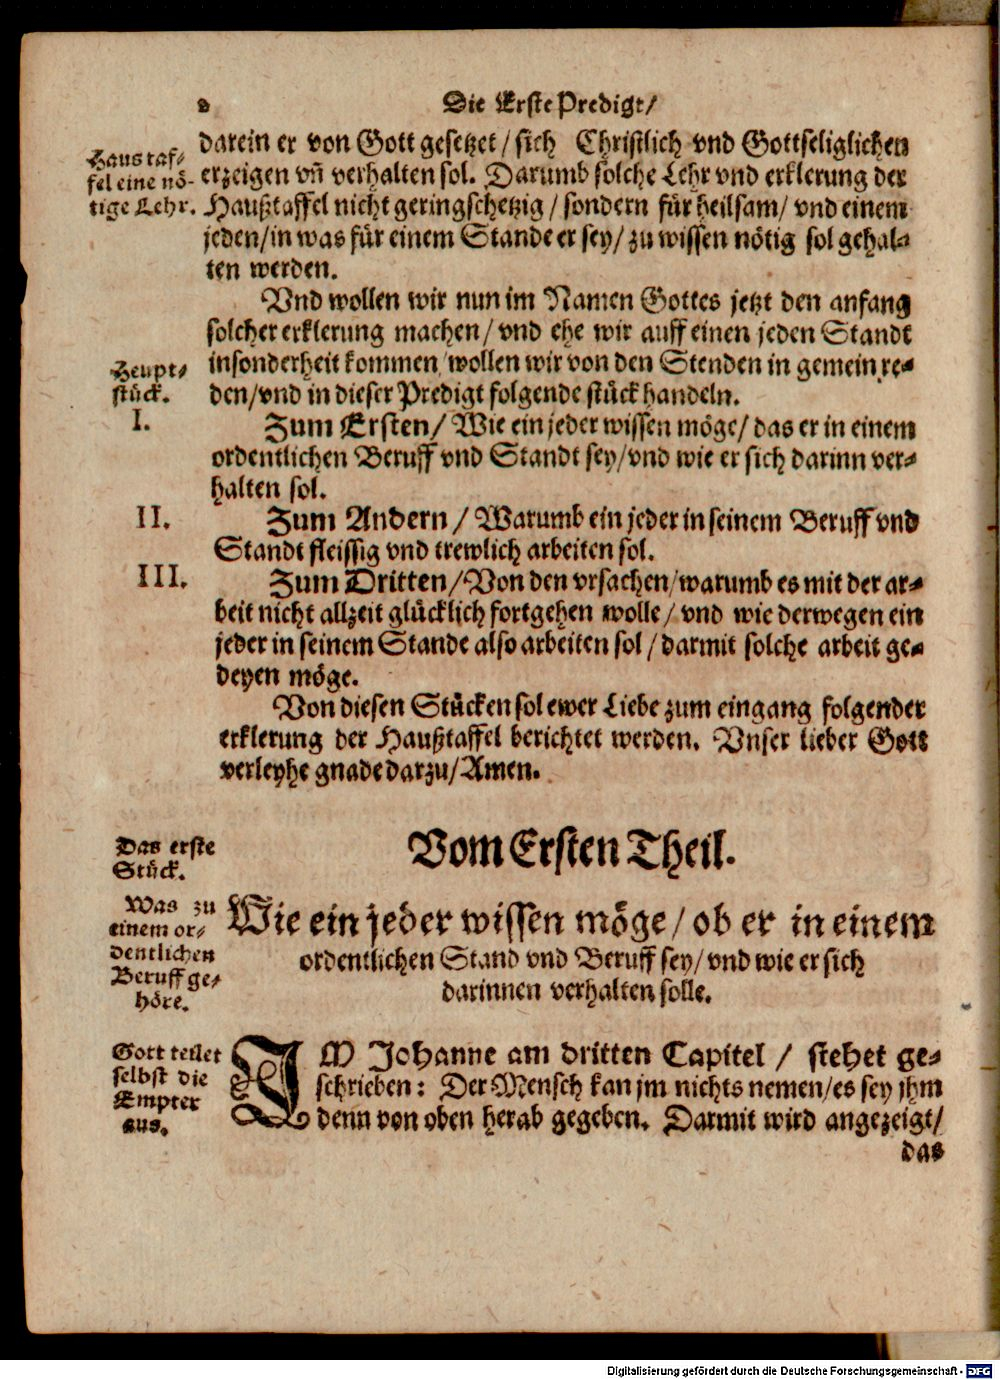 2 Die Erste Predigt/
darein er von Gott gesetzet/ sich Christlich vnd Gottseliglichen
erzeigen vñ verhalten sol. Darumb solche Lehr vnd erklerung der
Haußtaffel nicht geringschetzig/ sondern für heilsam/ vnd einem
jeden/ in was für einem Stande er sey/ zu wissen nötig sol gehal-
ten werden.
Haus taf-
fel eine nö-
tige Lehr.
Vnd wollen wir nun im Namen Gottes jetzt den anfang
solcher erklerung machen/ vnd ehe wir auff einen jeden Standt
insonderheit kommen/ wollen wir von den Stenden in gemein re-
den/ vnd in dieser Predigt folgende stück handeln.
Heupt-
stück.
I.
Zum Ersten/ Wie ein jeder wissen möge/ das er in einem
ordentlichen Beruff vnd Standt sey/ vnd wie er sich darinn ver-
halten sol.
II.
Zum Andern/ Warumb ein jeder in seinem Beruff vnd
Standt fleissig vnd trewlich arbeiten sol.
III.
Zum Dritten/ Von den vrsachen/ warumb es mit der ar-
beit nicht allzeit glücklich fortgehen wolle/ vnd wie derwegen ein
jeder in seinem Stande also arbeiten sol/ darmit solche arbeit ge-
deyen möge.
Von diesen Stücken sol ewer Liebe zum eingang folgender
erklerung der Haußtaffel berichtet werden. Vnser lieber Gott
verleyhe gnade darzu/ Amen.
Das erste
Stück.
Vom Ersten Theil.
Was zu
einem or-
dentlichen
Beruff ge-
höre.
Wie ein jeder wissen möge/ ob er in einem
ordentlichen Stand vnd Beruff sey/ vnd wie er sich
darinnen verhalten solle.
Gott teilet
selbst die
Empter
aus.
IM Johanne am dritten Capitel/ stehet ge-
schrieben: Der Mensch kan jm nichts nemen/ es sey jhm
denn von oben herab gegeben. Darmit wird angezeigt/
das
Digitalisierung gefördert durch die Deutsche Forschungsgemeinschaft - DFG